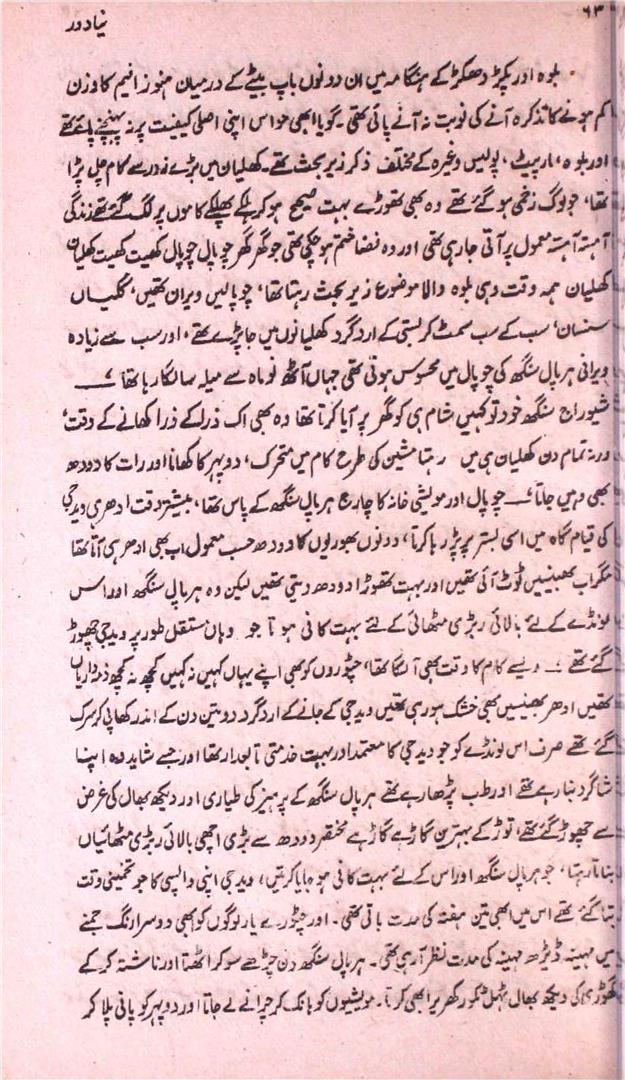 ۶۳
نیا دور
بلوہ اور پکڑ دھکڑ کے ہنگامہ میں ان دونوں باپ بیٹے کے درمیان ہنوز افیم کا وزن
کم ہونے کا تذکرہ آنے کی نوبت نہ آنے پائی تھی۔ گویا ابھی حواس اپنی اصلی کیفیت پر نہ پہنچے پائے تھے
اور بلوہ، مارپیٹ، پولیس وغیرہ کے مختلف ذکر زیر بحث تھے۔ کھلیان میں بڑے زور سے کام چل پڑا
تھا، جو لوگ زخمی ہو گئے تھے وہ بھی تھوڑے بہت صحیح ہو کر ہلکے پھلکے کاموں پر لگ گئے تھے زندگی
آہستہ آہستہ معمول پر آتی جا رہی تھی اور وہ فضا ختم ہو چکی تھی جو گھر گھر چوپال چوپال کھیت کھیت کھلیان
کھلیان ہمہ وقت وہی بلوہ والا موضوع زیر بحث رہتا تھا، چوپالیں ویران تھیں، گلیاں
سنسان، سب کے سب سمٹ کر بستی کے ارد گرد کھلیانوں میں جا پڑے تھے، اور سب سے زیادہ
ویرانی ہرپال سنگھ کی چوپال میں محسوس ہوتی تھی جہاں آٹھ نو ماہ سے میلہ سا لگا رہا تھا ؎
شیوراج سنگھ خود تو کہیں شام ہی کو گھر پر آیا کرتا تھا وہ بھی اک ذرا کے ذرا کھانے کے وقت،
ورنہ تمام دن کھلیان ہی میں رہتا مشین کی طرح کام میں متحرک، دوپہر کا کھانا اور رات کا دودھ
بھی وہیں جاتا ؎ چوپال اور مویشی خانہ کا چارج ہرپال سنگھ کے پاس تھا، بیشتر وقت ادھر ہی ویدجی
کی قیام گاہ میں اسی بستر پر پڑ رہا کرتا، دونوں بھوریوں کا دودھ حسب معمول اب بھی ادھر ہی آتا تھا
مگر اب بھینسیں ٹوٹ آئی تھیں اور بہت تھوڑا دودھ دیتی تھیں لیکن وہ ہرپال سنگھ اور اس
لونڈے کے لئے بالائی ربڑی مٹھائی کے لئے بہت کافی ہوتا جو وہاں مستقل طور پر ویدجی چھوڑ
گئے تھے ؎ ویسے کام کا وقت بھی آ لگا تھا، چٹوروں کو بھی اپنے یہاں کہیں نہ کہیں کچھ نہ کچھ ذمہ داریاں
تھیں ادھر بھینسیں بھی خشک ہو رہی تھیں ویدجی کے جانے کے ارد گرد دو تین دن کے اندر کھا پی کر سرک
گئے تھے صرف اس لونڈے کو جو ویدجی کا معتمد اور بہت خدمتی تابعدار تھا اور جسے شاید وہ اپنا
شاگرد بنا رہے تھے اور طب پڑھا رہے تھے ہرپال سنگھ کے پرہیز کی طیاری اور دیکھ بھال کی غرض
سے چھوڑ گئے تھے، توڑ کے بہترین گاڑھے گاڑھے مختصر دودھ سے بڑی اچھی بالائی ربڑی مٹھائیاں
بناتا رہتا، جو ہرپال سنگھ اور اس کے لئے بہت کافی ہو جایا کرتیں، ویدجی اپنی واپسی کا جو تخمینی وقت
بتا گئے تھے اس میں ابھی تین ہفتہ کی مدت باقی تھی۔ اور چٹورے یار لوگوں کو بھی دوسرا رنگ جمنے
میں مہینہ ڈیڑھ مہینہ کی مدت نظر آ رہی تھی۔ ہرپال سنگھ دن چڑھے سو کر اٹھتا اور ناشتہ کر کے
گھوڑی کی دیکھ بھال ٹہل ٹکور کھریرا بھی کرتا۔ مویشیوں کو ہانک کر چرانے لے جاتا اور دوپہر کو پانی پلا کر